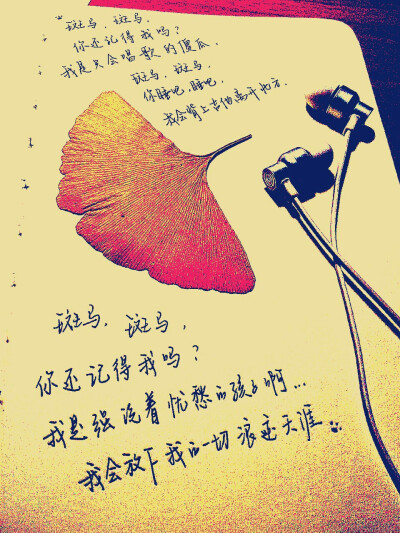 斑马,斑马,
你还记得我吗?
我是只会唱歌的傻瓜.
斑马,斑马,
你睡吧,睡吧,
我会背上吉他离开北方.
斑马,斑马,
你还记得我吗?
我是强说着忧愁的孩子啊...
我会放下我的一切浪迹天涯...